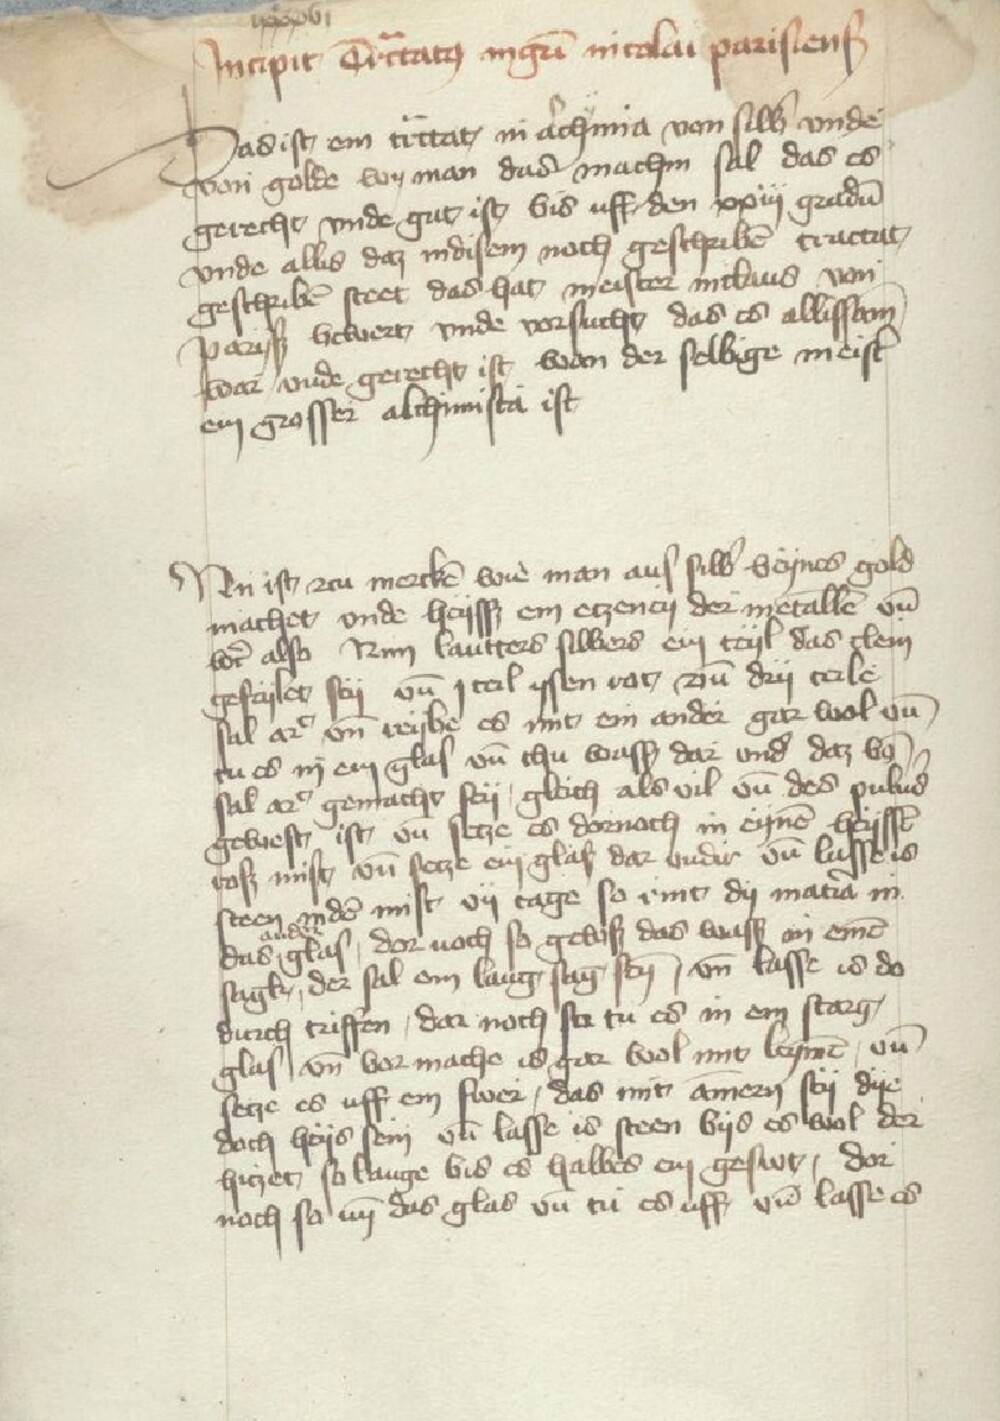 Incipit Tractatꝯ mgrī nicolai parisienß
Das ist ein tractat in alchimia von silbʼ vnde
von golde wy man das machin sal das es
gerecht vnde gut ist bis uff den xxiiij gradū
vnde allis daz indisem noch geschribē tractat
geschribē steet das hat meister niclaus von
paryß bewert vnde vorsucht das es allissam
war vnde gerecht ist wan der selbige meistʼ
ein grosser alchimista ist
Nu ist zcu merckē wie man aus silbʼ feynes gold
machet vnde heysß ein etzency der metallē vn̄
also Nim lautters silbers ein teyl das clein
gefeylet sey vn̄ j teil ysen rot vn̄ drij teile
sal arᶜ vn̄ reybe es mit ein ander gar wol vn̄
tu es in ein glas vn̄ thu wasß dar vndʼ daz vō
sal arᶜ gemacht sey gleich als vil vn̄ des puluʼs
gewest ist vn̄ setze es dornoch in eynē heyssē
roß mist vn̄ setze ein glaß dar vndir vn̄ lasse is
steen indē mist vij tage so rint dy matʼia in
das ander glas, dor noch so gewß das wasß in einē
sagk, der sal ein lang sag seȳ, vn̄ lasse is do
durch triffen, dar noch so tu es in ein starg
glas, vn̄ vor mache is gar wol mit leymē, vn̄
setze es uff ein fwer, das mit amern sey dye
doch heys sein vn̄ lasse is steen bys es wol der
hitzet so lange bis es halbes ein gesutt, dor
noch so nȳ das glas vn̄ tu es uff vn̄ lasse es